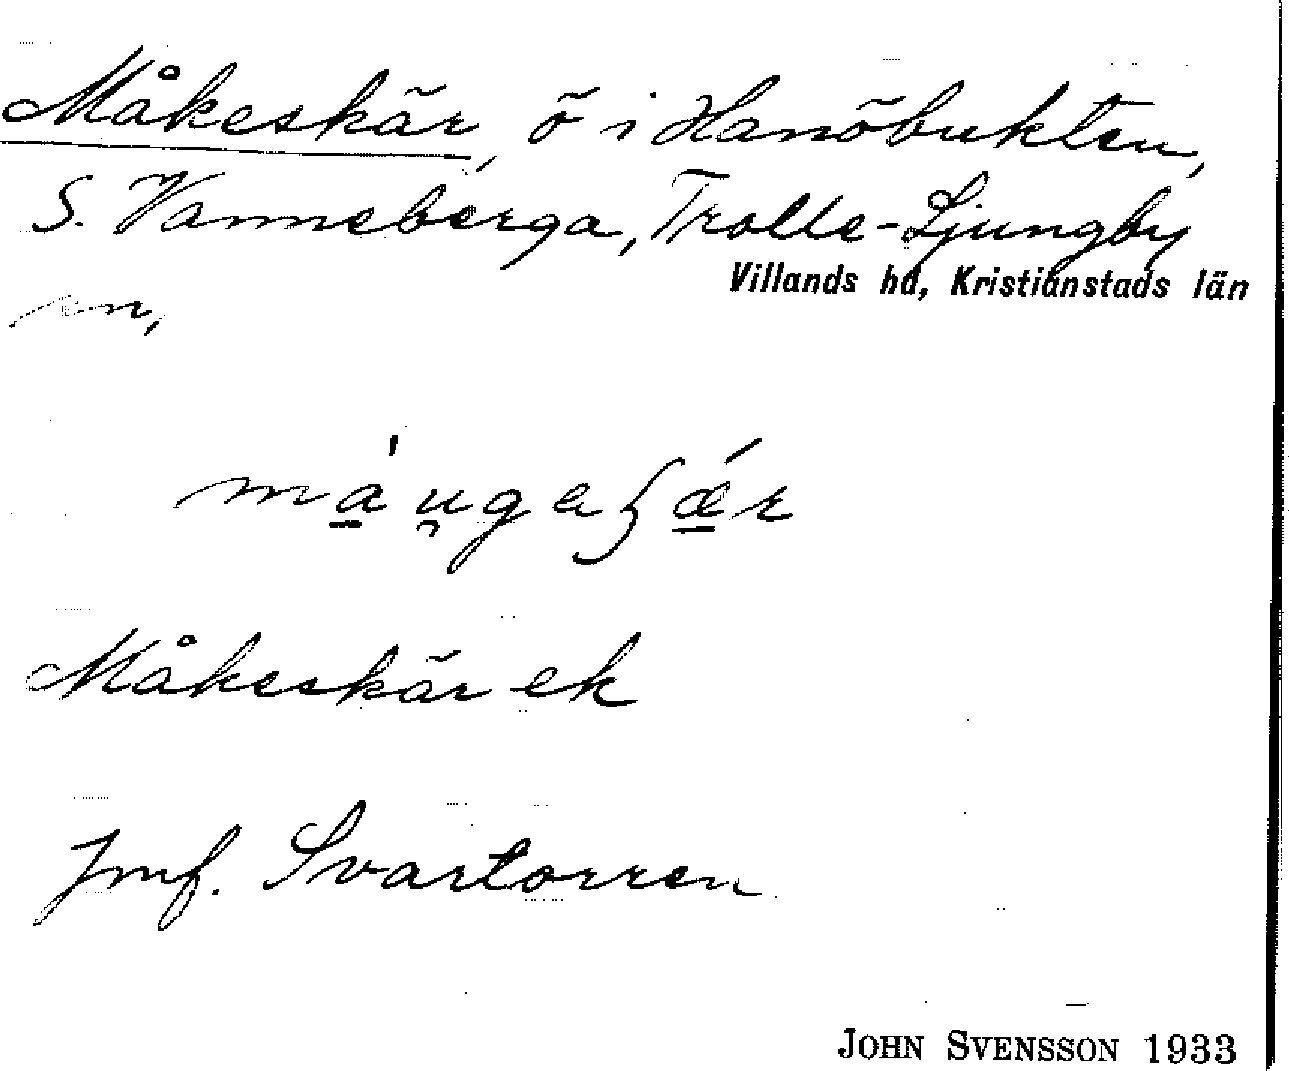 Måkeskär, ö i Hanöbukten,
S. Vanneberga, Trolle-Ljungby
Villands hd, Kristianstads län
sn,
má̱u̯gaʃǽ̱r
Måkeskär ek
Jmf. Svartorren
JOHN SVENSSON 1933